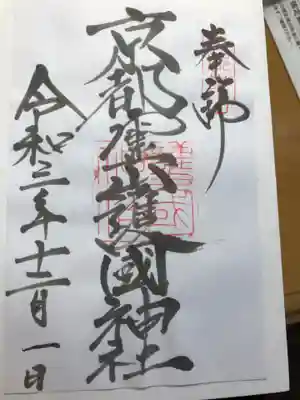 奉拝
京都霊山護國神社
令和三年十二月一日